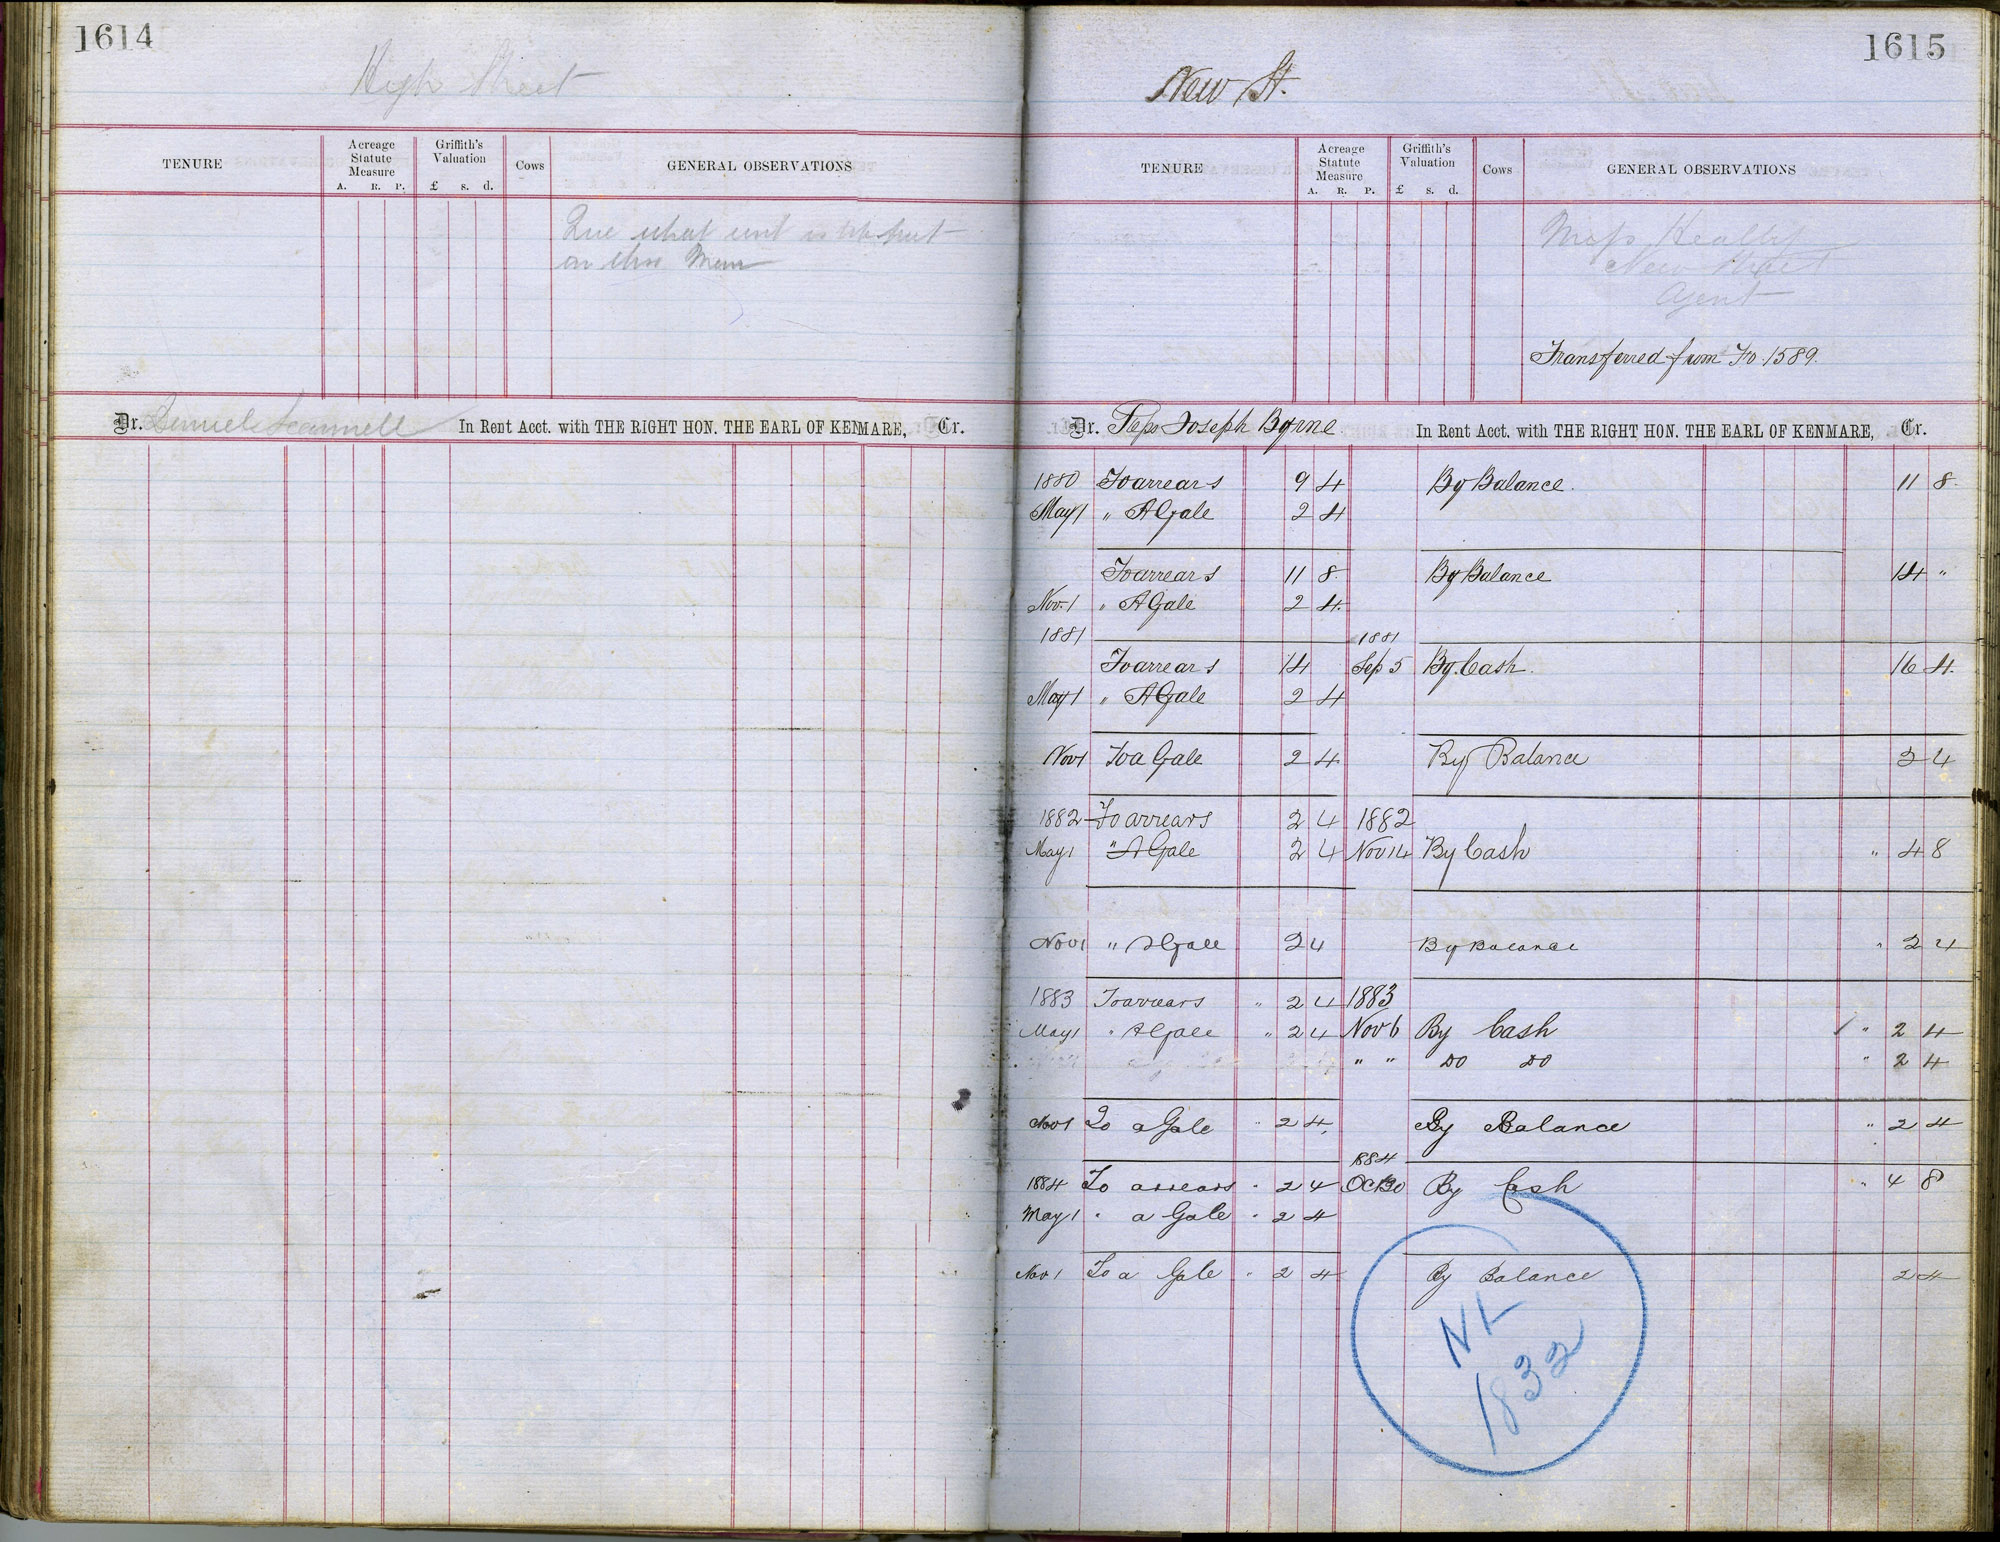 1614
High Street
TENURE
Acreage Statute Measure
A. R. P.
Griffith's Valuation
£ s. d.
Cows
GENERAL OBSERVATIONS
what rent is
on this
Dr. Scannell In Rent Acct. with THE RIGHT HON. THE EARL OF KENMARE, Cr.
1615
New St.
TENURE
Acreage Statute Measure
A. R. P.
Griffith's Valuation
£ s. d.
Cows
GENERAL OBSERVATIONS
Healy
New Street
Agent
Transferred from Fo 1589.
Dr. Reps Joseph Byrne In Rent Acct. with THE RIGHT HON. THE EARL OF KENMARE, Cr.
1880 To arrears 9 4 By Balance. 11 8
May 1 " A Gale 2 4
To arrears 11 8 By Balance 14 "
Nov. 1 " A Gale 2 4
1881 1881
To arrears 14 Sep 5 By Cash. 16 4
May 1 " A Gale 2 4
Nov 1 To a Gale 2 4 By Balance 2 4
1882 To arrears 2 4 1882
May 1 " A Gale 2 4 Nov 14 By Cash " 4 8
Nov 1 " A Gale 2 4 By Balance " 2 4
1883 To arrears " 2 4 1883
May 1 " A Gale " 2 4 Nov 6 By Cash " 2 4
" " Do Do " 2 4
Nov 1 To a Gale " 2 4 By Balance " 2 4
1884
1884 To arrears " 2 4 Oct 30 By Cash " 4 8
May 1 " a Gale " 2 4
Nov 1 To a Gale " 2 4 By Balance 2 4
NL
1832